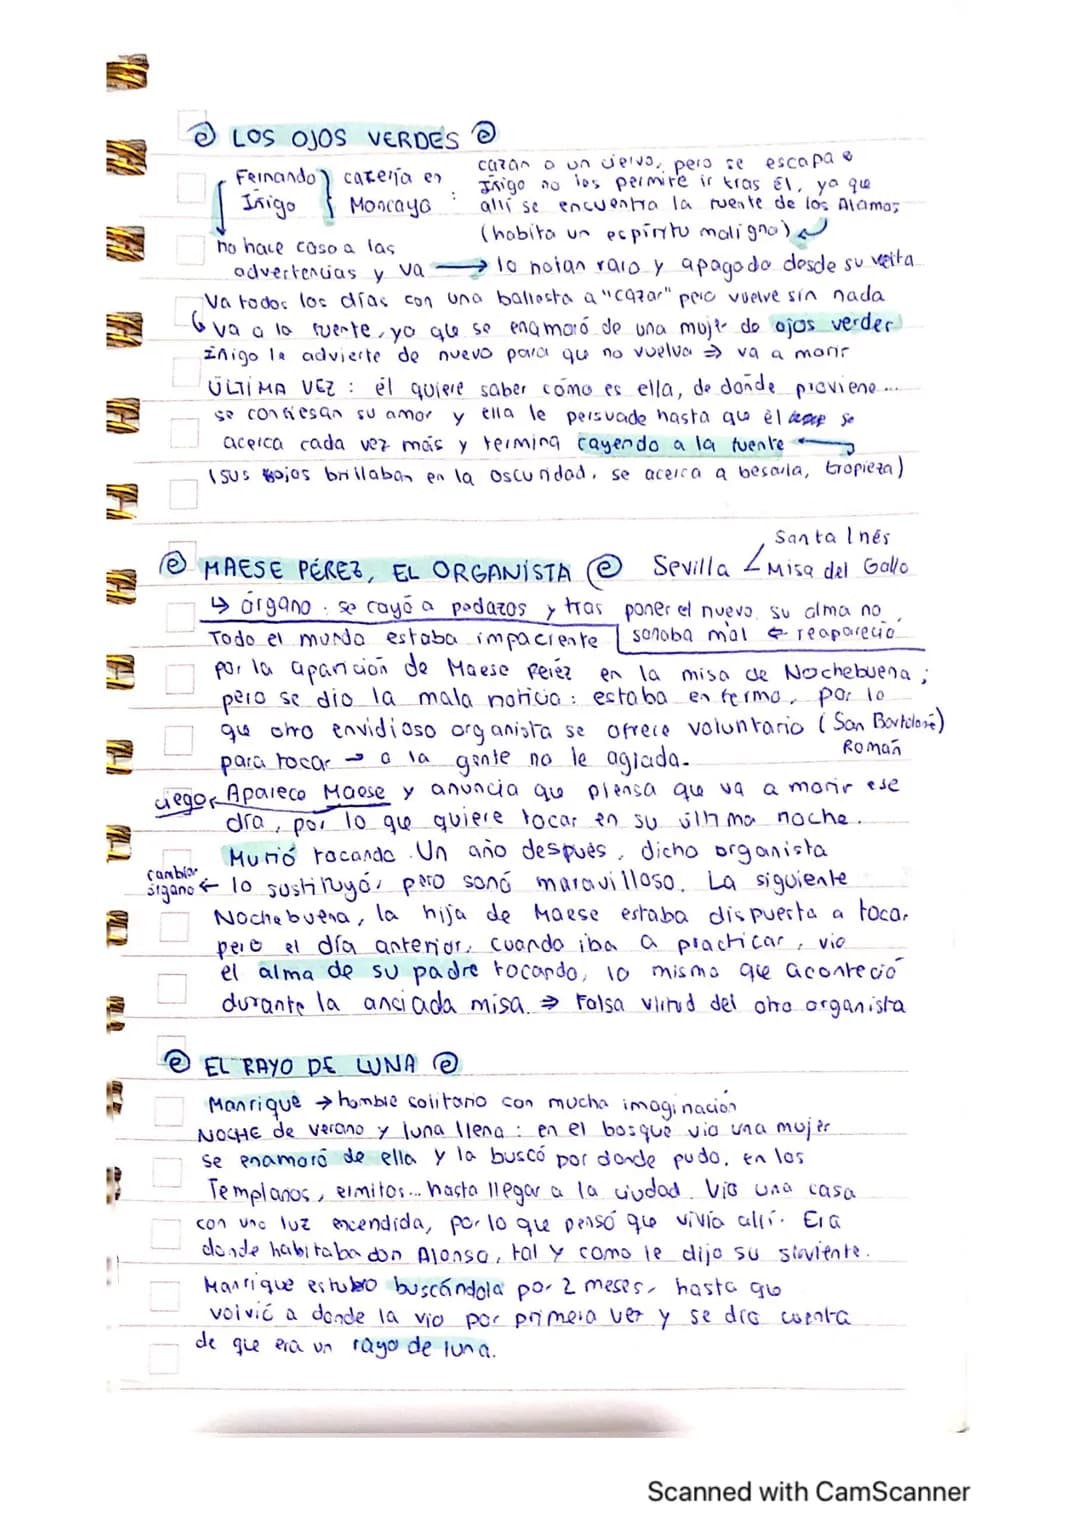 LOS OJOS VERDES
Fernando cacería en cazan a un ciervo, pero se escapa e
Iñigo Moncayo : Iñigo no les permite ir tras él, ya que
allí se encuentra la fuente de los Álamos
no hace caso a las (habita un espíritu maligno)
advertencias y va → lo notan raro y apagado desde su vuelta
Va todos los días con una ballesta a "cazar" pero vuelve sin nada
↳ va a la fuente, ya que se enamoró de una mujer de ojos verdes
Iñigo le advierte de nuevo para que no vuelva ⇒ va a morir
ÚLTIMA VEZ : él quiere saber cómo es ella, de dónde proviene...
se confiesan su amor y ella le persuade hasta que él se
acerca cada vez más y termina cayendo a la fuente
(sus ojos brillaban en la oscuridad, se acerca a besarla, tropieza)
Santa Inés
MAESE PÉREZ, EL ORGANISTA Sevilla Misa del Gallo
↳ órgano : se cayó a pedazos y tras poner el nuevo, su alma no
Todo el mundo estaba impaciente sonaba mal ← reapareció
por la aparición de Maese Peréz en la misa de Nochebuena ;
pero se dio la mala noticia : estaba enfermo, por lo
que otro envidioso organista se ofrece voluntario (San Bartolomé)
Román
para tocar → a la gente no le agrada.
ciego Aparece Maese y anuncia que piensa que va a morir ese
día, por lo que quiere tocar en su última noche.
Murió tocando. Un año después, dicho organista
cambiar
órgano ← lo sustituyó, pero sonó maravilloso. La siguiente
Nochebuena, la hija de Maese estaba dispuesta a tocar
pero el día anterior, cuando iba a practicar, vio
el alma de su padre tocando, lo mismo que aconteció
durante la anciada misa. ⇒ Falsa virtud del otro organista
EL RAYO DE LUNA
Manrique → hombre solitario con mucha imaginación
NOCHE de verano y luna llena : en el bosque vio una mujer
se enamoró de ella y la buscó por donde pudo, en los
Templarios, ermitas... hasta llegar a la ciudad. Vio una casa
con una luz encendida, por lo que pensó que vivía allí. Era
donde habitaba don Alonso, tal y como le dijo su sirviente.
Manrique estubo buscándola por 2 meses, hasta que
volvió a donde la vio por primera vez y se dio cuenta
de que era un rayo de luna.
Scanned with CamScanner